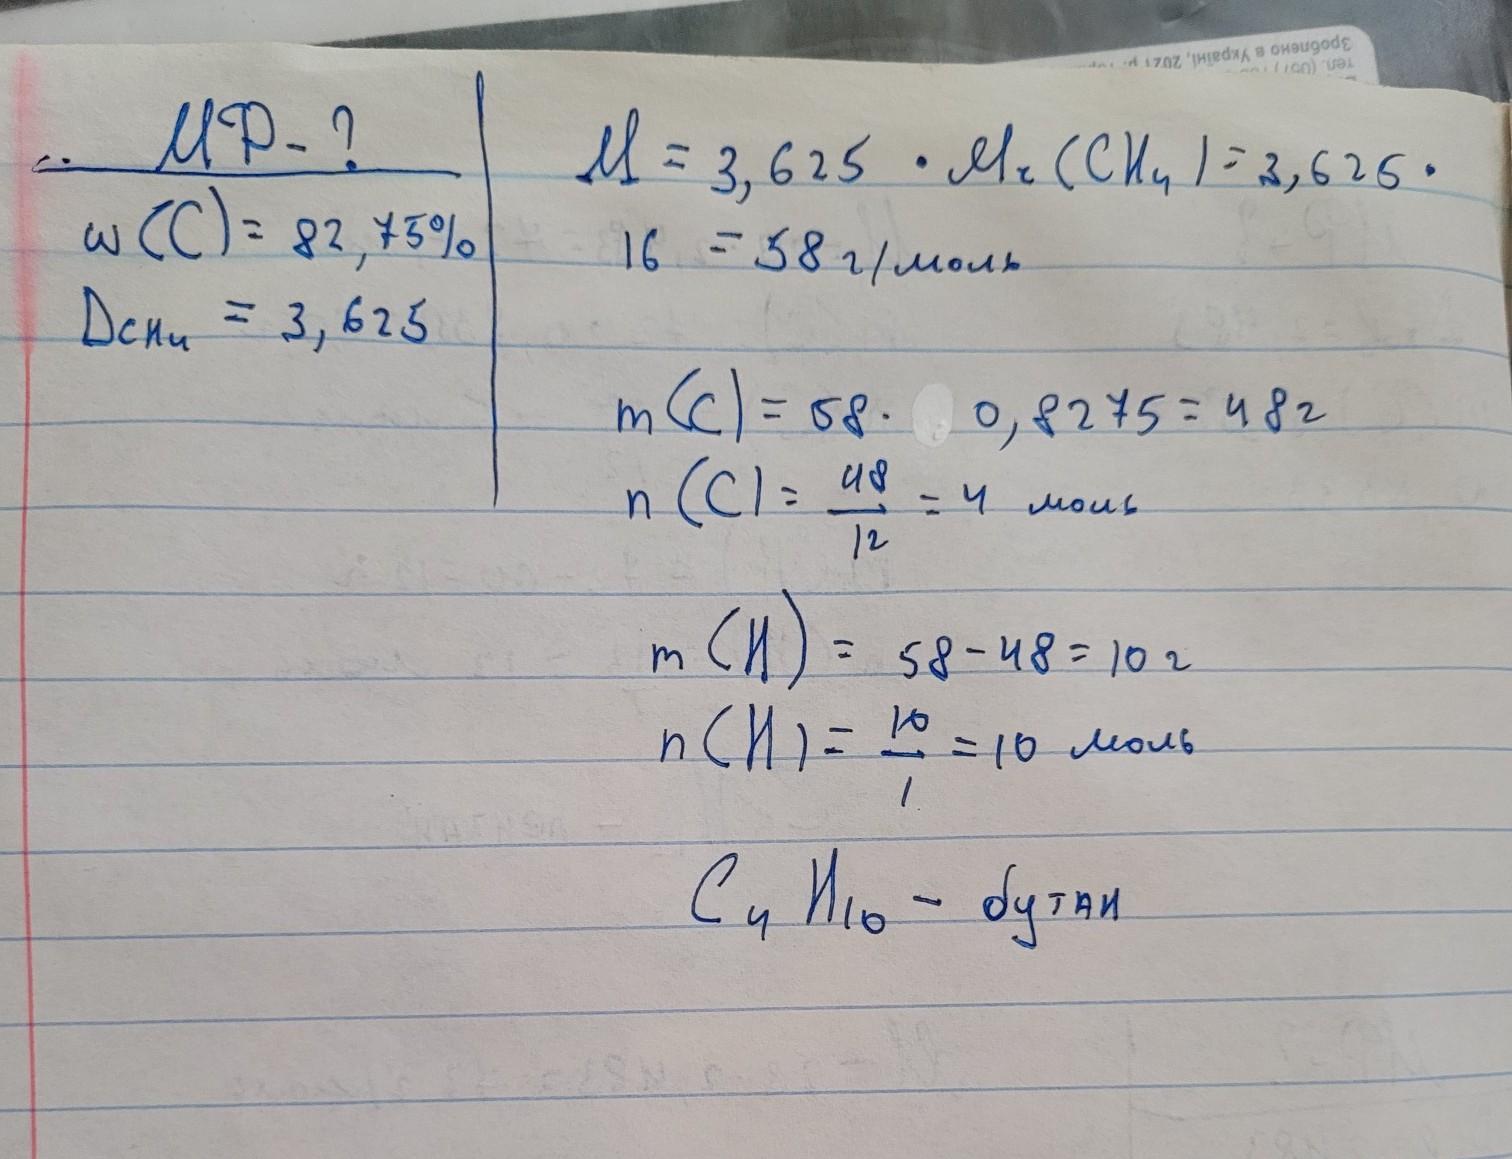 Зроблено в Україні, 2021 р.
тел. (057)
МР-?
w(C) = 82,75%
Dсн₄ = 3,625
M = 3,625 · Mr(CH₄) = 3,625 ·
16 = 58 г/моль
m(C) = 58 · 0,8275 = 48г
n(C) = 48/12 = 4 моль
m(H) = 58 - 48 = 10 г
n(H) = 10/1 = 10 моль
C₄H₁₀ - бутан